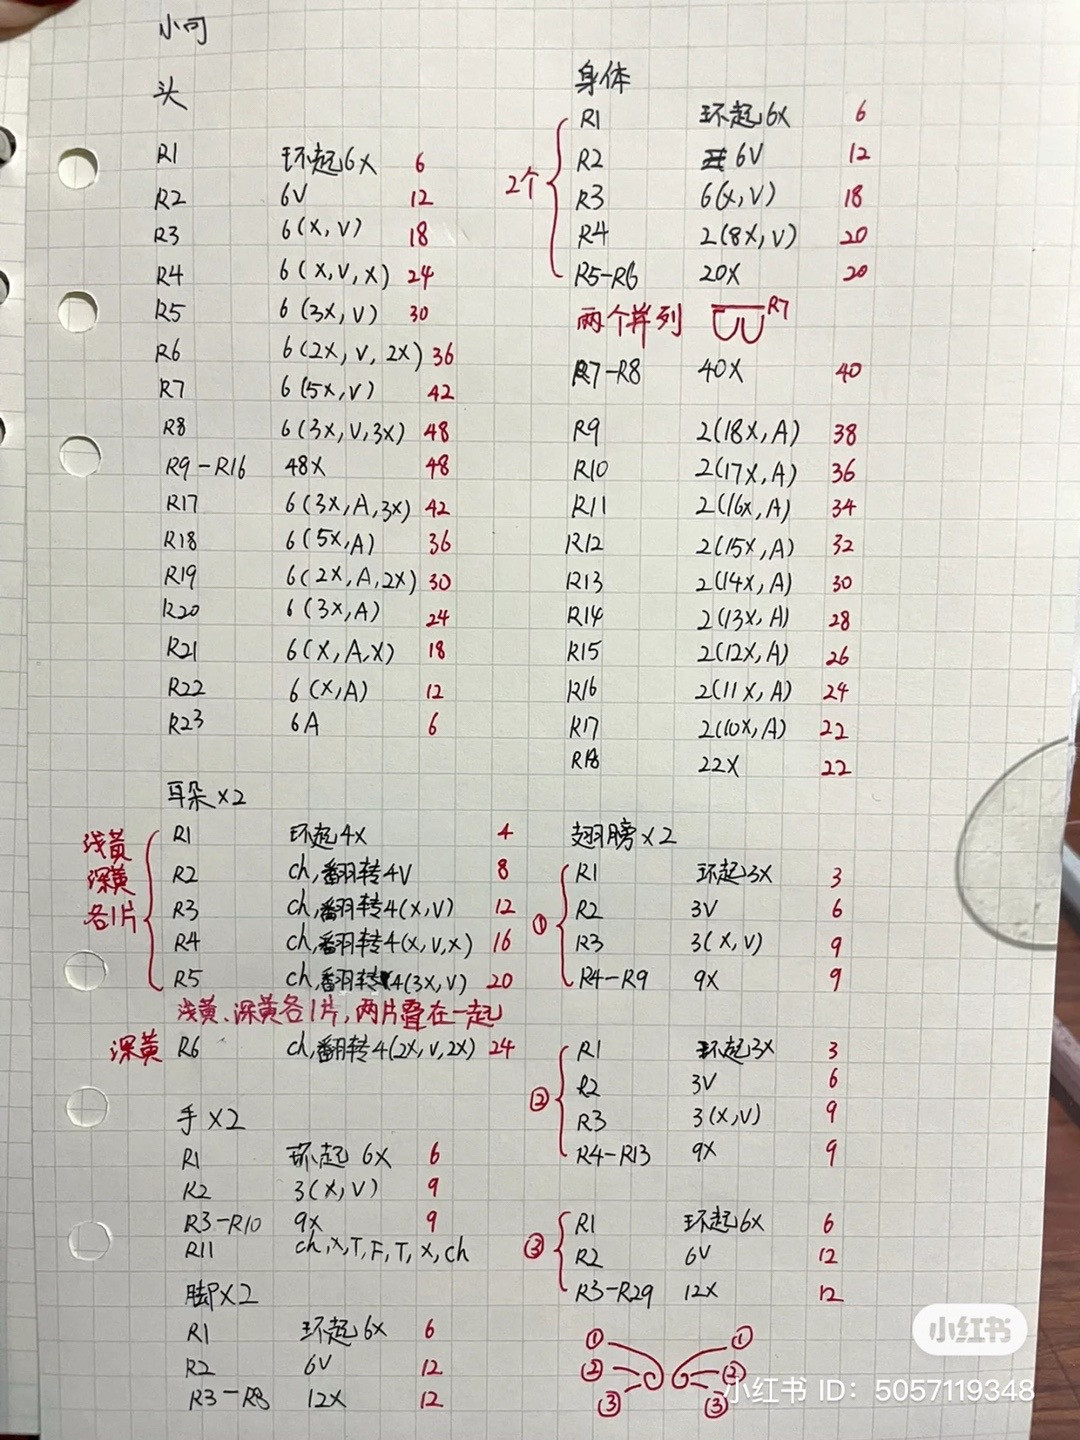 小可
头
R1 环起6X 6
R2 6V 12
R3 6(X,V) 18
R4 6(X,V,X) 24
R5 6(3X,V) 30
R6 6(2X,V,2X) 36
R7 6(5X,V) 42
R8 6(3X,V,3X) 48
R9-R16 48X 48
R17 6(3X,A,3X) 42
R18 6(5X,A) 36
R19 6(2X,A,2X) 30
R20 6(3X,A) 24
R21 6(X,A,X) 18
R22 6(X,A) 12
R23 6A 6
耳朵X2
浅黄
深黄
各1片
R1 环起4X 4
R2 ch,翻转4V 8
R3 ch,翻转4(X,V) 12
R4 ch,翻转4(X,V,X) 16
R5 ch,翻转4(3X,V) 20
浅黄、深黄各1片,两片叠在一起
深黄 R6 ch,翻转4(2X,V,2X) 24
手X2
R1 环起6X 6
R2 3(X,V) 9
R3-R10 9X 9
R11 ch,X,T,F,T,X,ch
脚X2
R1 环起6X 6
R2 6V 12
R3-R8 12X 12
身体
2个
R1 环起6X 6
R2 6V 12
R3 6(X,V) 18
R4 2(8X,V) 20
R5-R6 20X 20
两个并列 R7
R7-R8 40X 40
R9 2(18X,A) 38
R10 2(17X,A) 36
R11 2(16X,A) 34
R12 2(15X,A) 32
R13 2(14X,A) 30
R14 2(13X,A) 28
R15 2(12X,A) 26
R16 2(11X,A) 24
R17 2(10X,A) 22
R18 22X 22
翅膀X2
①
R1 环起3X 3
R2 3V 6
R3 3(X,V) 9
R4-R9 9X 9
②
R1 环起3X 3
R2 3V 6
R3 3(X,V) 9
R4-R13 9X 9
③
R1 环起6X 6
R2 6V 12
R3-R29 12X 12
① ①
② ②
③ ③
小红书
小红书 ID: 5057119348